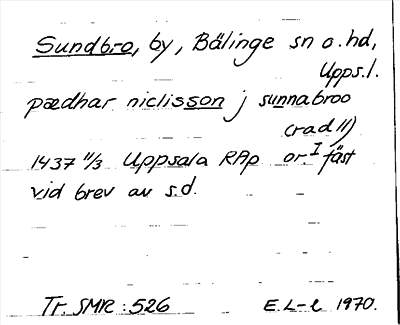 Sundbro, by, Bälinge sn o. hd,
Upps.l.
pædhar niclisson j sunnabroo
(rad 11)
1437 11/3 Uppsala RAp or. I fäst
vid brev av s.d.
Tr. SMR: 526 E.L-l 1970.